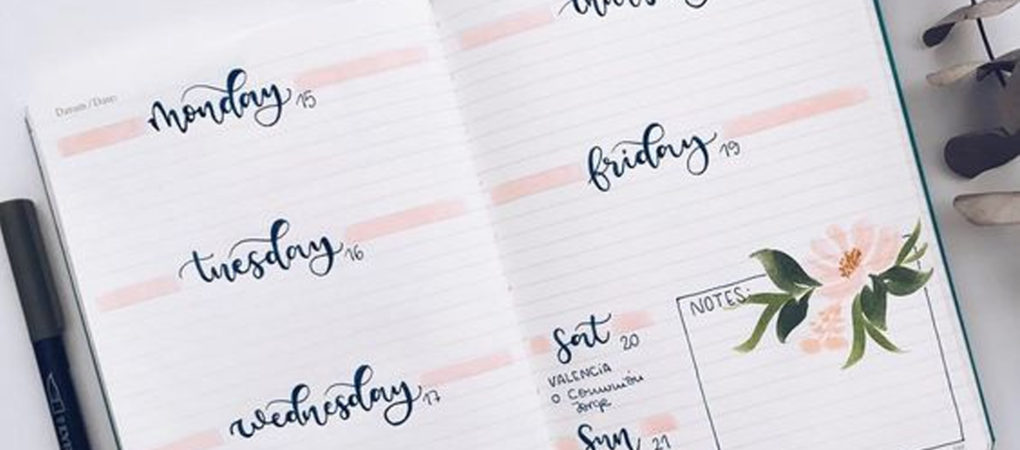 Datum / Date:
monday 15
tuesday 16
wednesday 17
thursday
friday 19
sat 20
VALENCIA
o Comunión
Jorge
sun 21
NOTES: